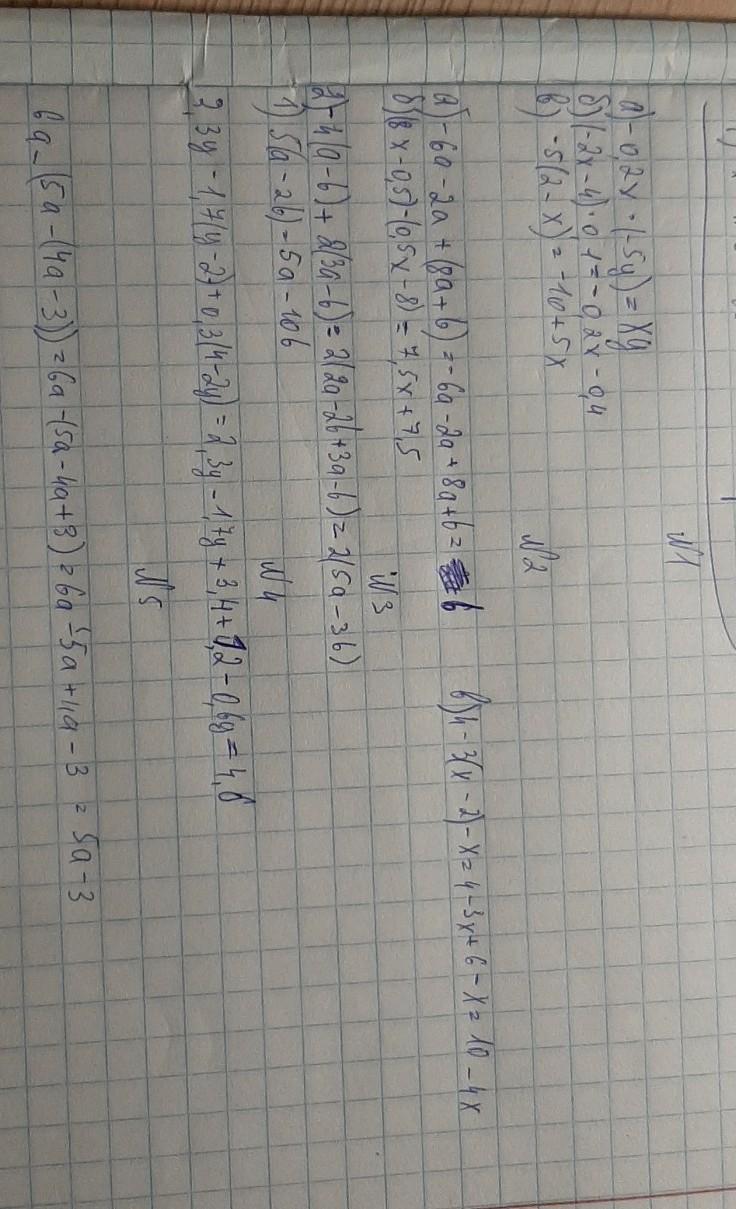 N1
а) -0,2x · (-5y) = xy
б) (-2x - 4) · 0,1 = -0,2x - 0,4
в) -5(2 - x) = -10 + 5x
N2
а) -6a - 2a + (8a + b) = -6a - 2a + 8a + b = b
в) 4 - 3(x - 2) - x = 4 - 3x + 6 - x = 10 - 4x
б) (8x - 0,5) - (0,5x - 8) = 7,5x + 7,5
N3
2) -4(a - b) + 2(3a - b) = 2(2a - 2b + 3a - b) = 2(5a - 3b)
1) 5(a - 2b) = 5a - 10b
N4
2,3y - 1,7(y - 2) + 0,3(4 - 2y) = 2,3y - 1,7y + 3,4 + 1,2 - 0,6y = 4,6
N5
6a - (5a - (4a - 3)) = 6a - (5a - 4a + 3) = 6a - 5a + 4a - 3 = 5a - 3